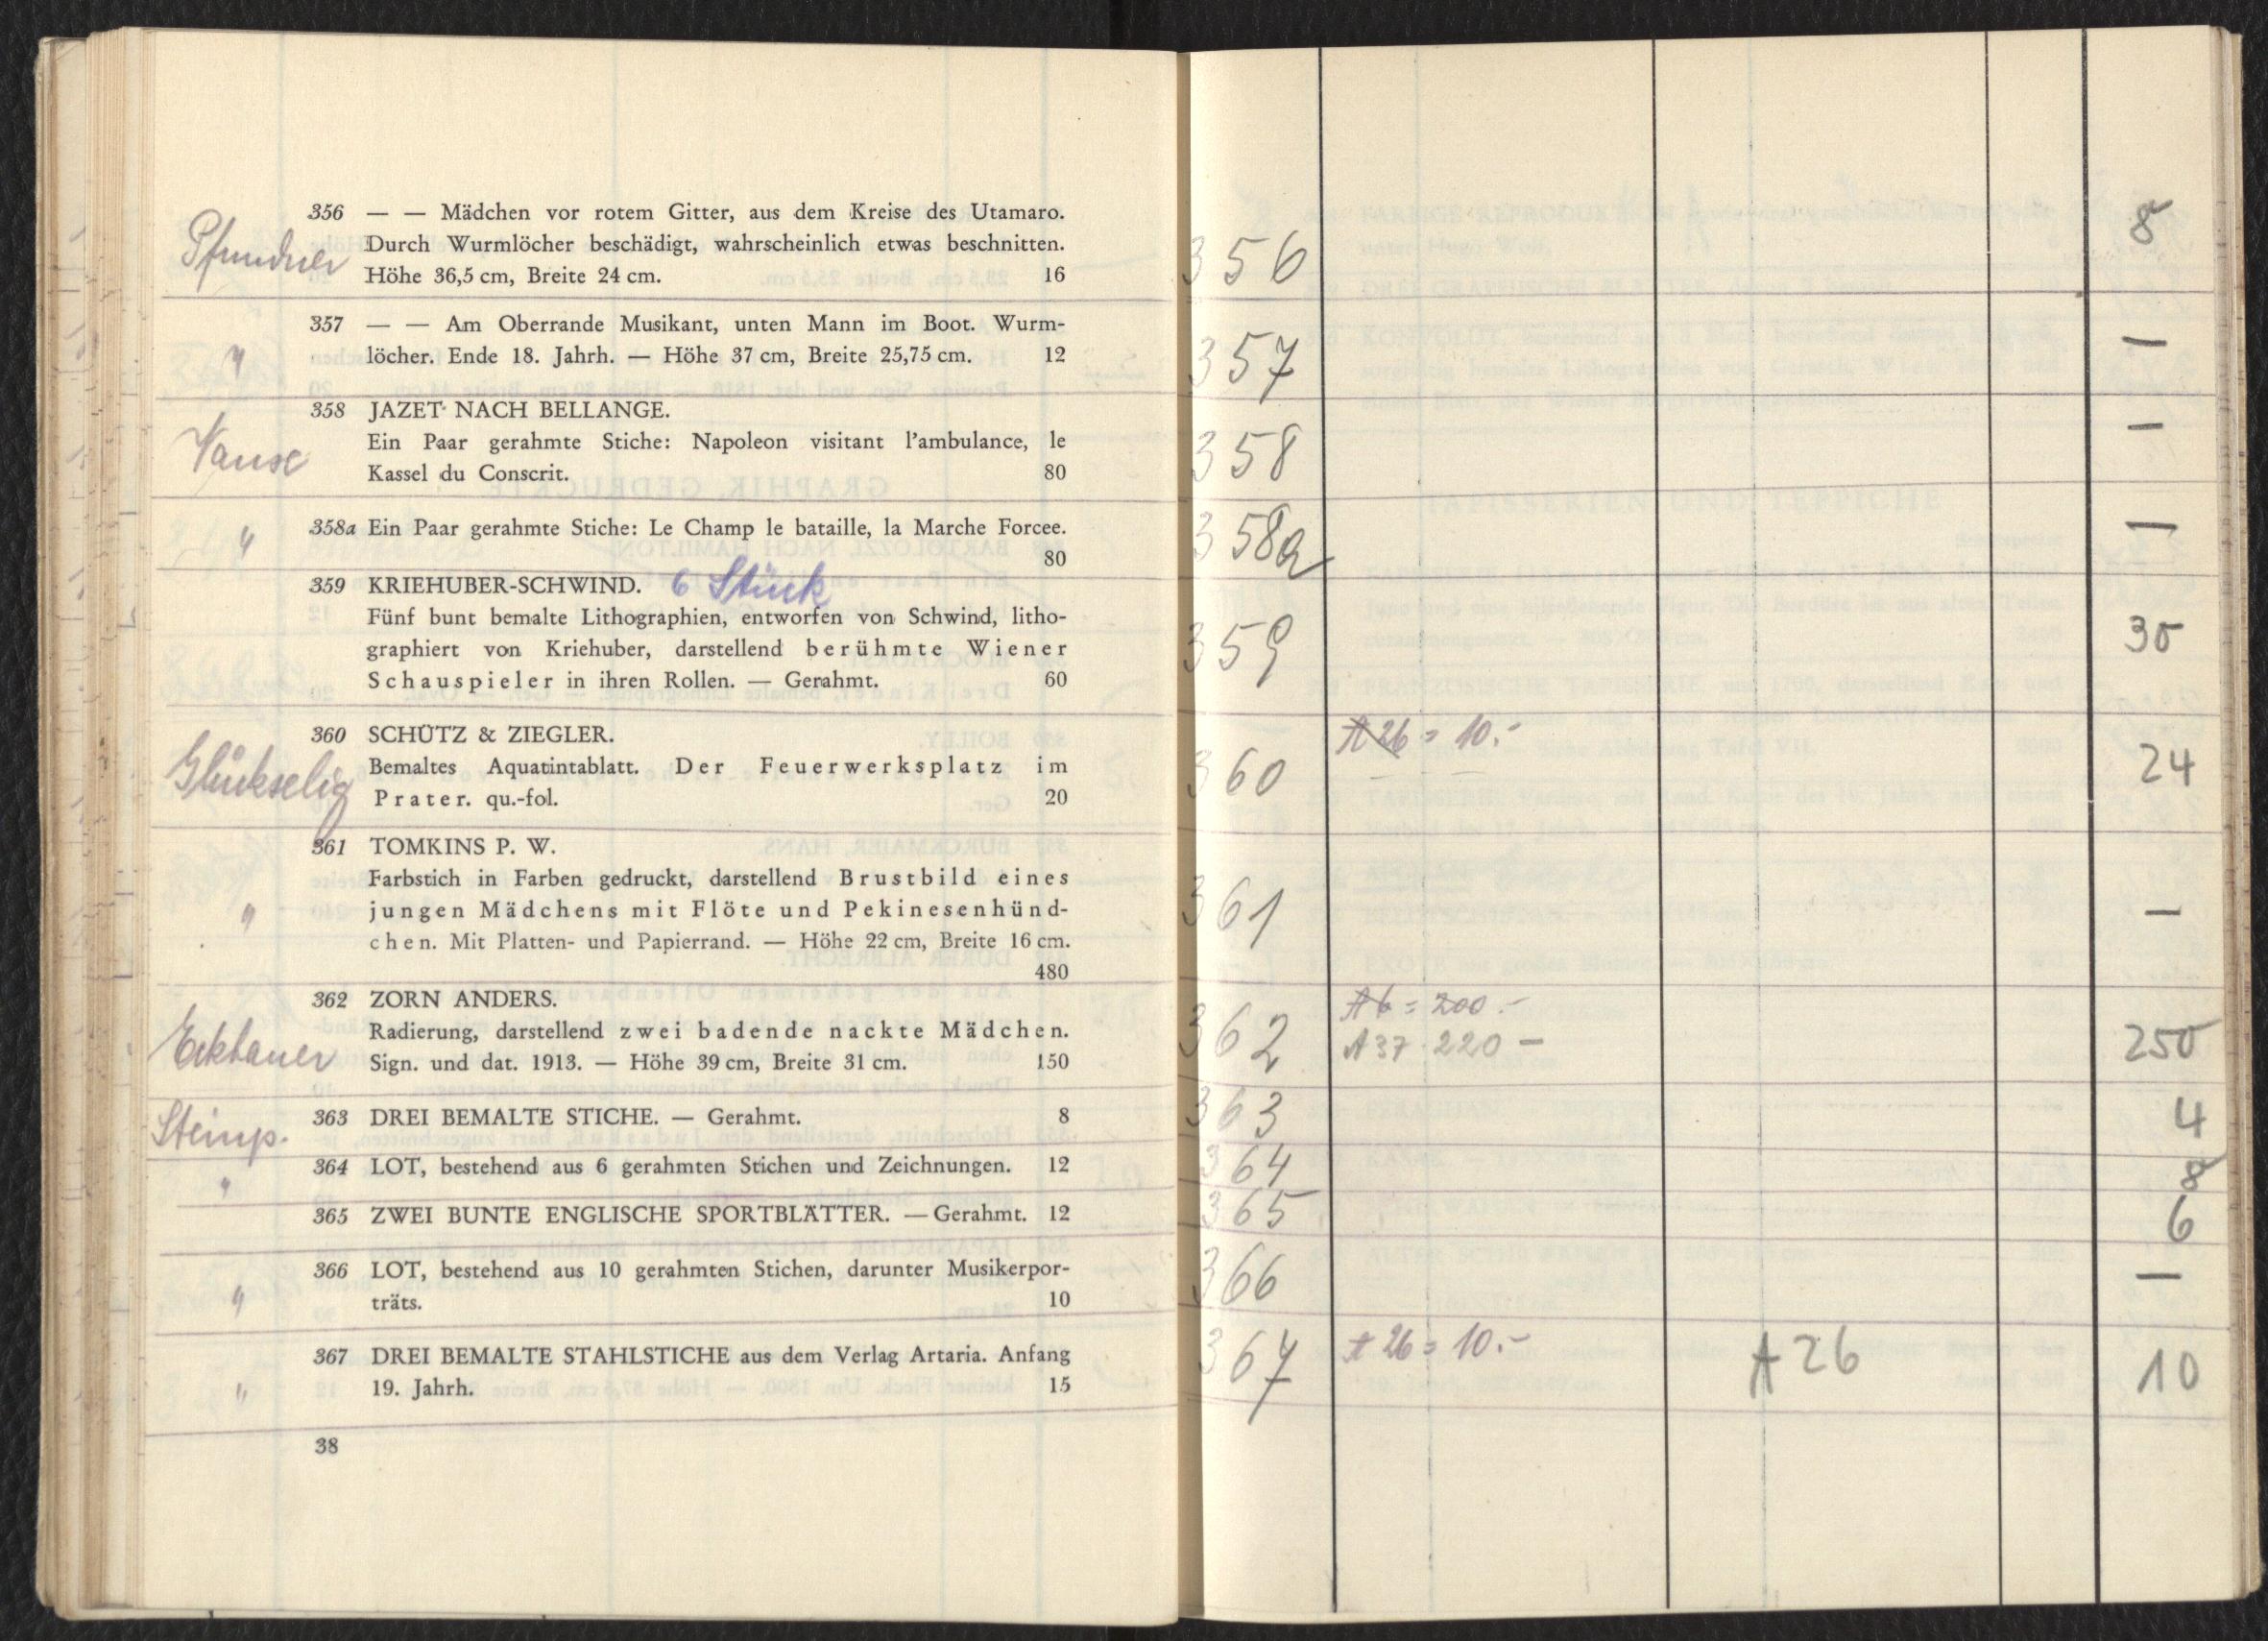 Pfundner
356 — — Mädchen vor rotem Gitter, aus dem Kreise des Utamaro.
Durch Wurmlöcher beschädigt, wahrscheinlich etwas beschnitten.
Höhe 36,5 cm, Breite 24 cm. 16
"
357 — — Am Oberrande Musikant, unten Mann im Boot. Wurm-
löcher. Ende 18. Jahrh. — Höhe 37 cm, Breite 25,75 cm. 12
358 JAZET NACH BELLANGE.
Ein Paar gerahmte Stiche: Napoleon visitant l'ambulance, le
Kassel du Conscrit. 80
"
358a Ein Paar gerahmte Stiche: Le Champ le bataille, la Marche Forcee.
80
359 KRIEHUBER-SCHWIND. 6 Stück
Fünf bunt bemalte Lithographien, entworfen von Schwind, litho-
graphiert von Kriehuber, darstellend berühmte Wiener
Schauspieler in ihren Rollen. — Gerahmt. 60
Glückselig
360 SCHÜTZ & ZIEGLER.
Bemaltes Aquatintablatt. Der Feuerwerksplatz im
Prater. qu.-fol. 20
"
361 TOMKINS P. W.
Farbstich in Farben gedruckt, darstellend Brustbild eines
jungen Mädchens mit Flöte und Pekinesenhünd-
chen. Mit Platten- und Papierrand. — Höhe 22 cm, Breite 16 cm.
480
Eckbauer
362 ZORN ANDERS.
Radierung, darstellend zwei badende nackte Mädchen.
Sign. und dat. 1913. — Höhe 39 cm, Breite 31 cm. 150
363 DREI BEMALTE STICHE. — Gerahmt. 8
"
364 LOT, bestehend aus 6 gerahmten Stichen und Zeichnungen. 12
365 ZWEI BUNTE ENGLISCHE SPORTBLÄTTER. — Gerahmt. 12
"
366 LOT, bestehend aus 10 gerahmten Stichen, darunter Musikerpor-
träts. 10
"
367 DREI BEMALTE STAHLSTICHE aus dem Verlag Artaria. Anfang
19. Jahrh. 15
38
356 8
357 —
358 —
358a —
359 30
360 A 26 = 10.- 24
361 —
362 A 6 = 200.- 250
A 37 220 —
363 4
364 8
365 6
366 —
367 A 26 = 10.- A 26 10